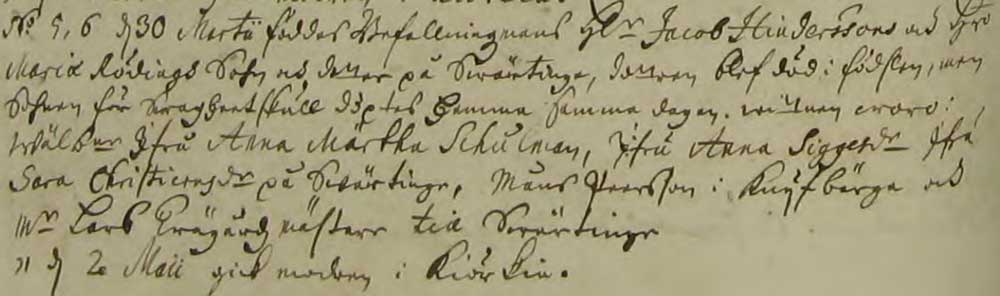 No 5, 6 d 30 Martii föddes Befallningmans Hr Jacob Hinderssons och Hro
Maria Rödings Sohn och dotter på Swärtinge, dottren blef död i födslen, men
Sohnen för swagheet skull döptes hemma samma dagen. wittnen woro:
Wälbne Jfru Anna Märtha Schulman, Jfru Anna Siggesdr Jfru
Sara Christiernsdr på Swärtinge, Måns Pearsson i Knyfbärga och
Mr Lars Trägårdzmästare til Swärtinge
d 20 Maii gick modren i Kiörkia.